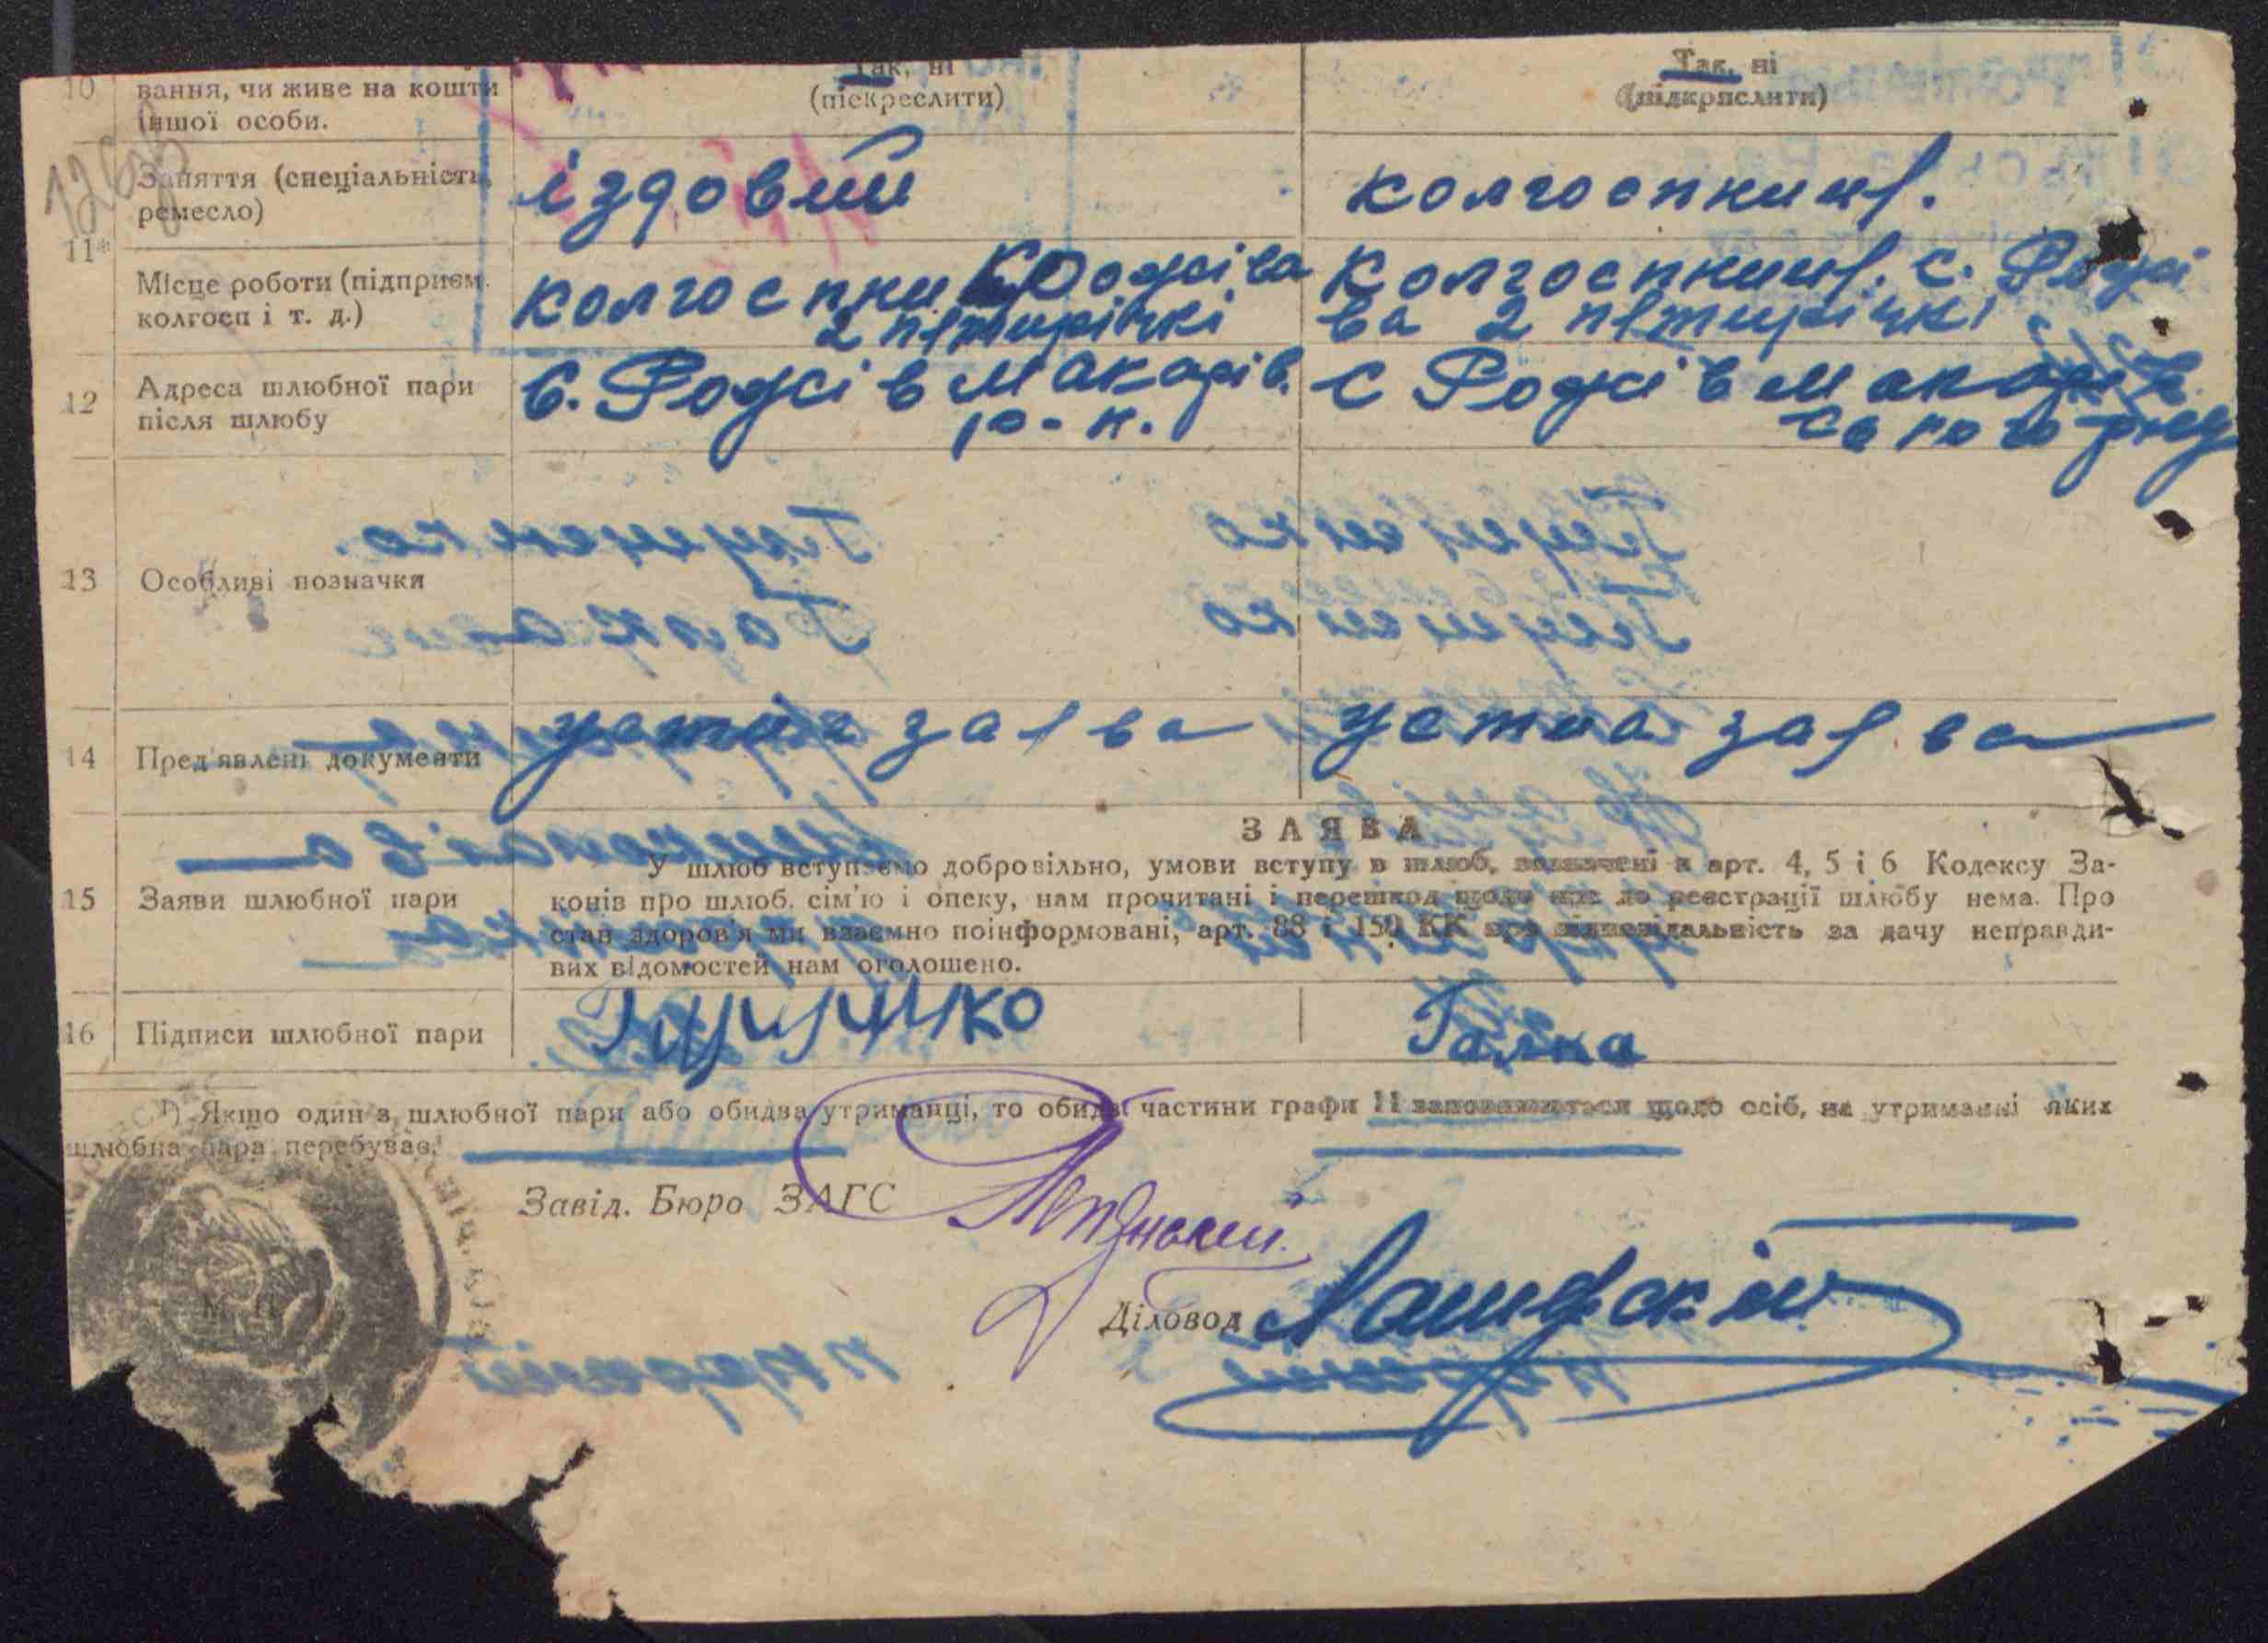 10 вання, чи живе на кошти Так, ні Так, ні
іншої особи. (піскреслити) (підкряслити)
Заняття (спеціальність, іздовий колгоспниця.
ремесло)
11*
Місце роботи (підприєм. колгоспник Рожіва колгоспниця. с. Рожі
колгосп і т. д.) 2 пятирічкі ва 2 пятирічкі
12 Адреса шлюбної пари с. Рожів Макарів. с Рожів Макарів
після шлюбу р-н. ського
13 Особливі позначки
14 Пред'явлені документи устна заява устна заява
ЗАЯВА
У шлюб вступаємо добровільно, умови вступу в шлюб, зазначені в арт. 4, 5 і 6 Кодексу За-
15 Заяви шлюбної пари конів про шлюб. сім'ю і опеку, нам прочитані і перешкод щодо до реєстрації шлюбу нема. Про
стан здоров'я ми взаємно поінформовані, арт. 88 і 150 КК про відповідальність за дачу неправди-
вих відомостей нам оголошено.
16 Підписи шлюбної пари Галка
Якщо один з шлюбної пари або обидва утриманці, то обидві частини графи 11 заповнюються щодо осіб, на утриманні яких
шлюбна пара перебуває.
Завід. Бюро ЗАГС
М. П.
Діловод